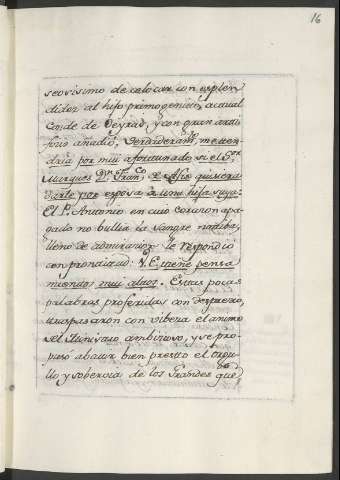 16
seosísimo de celocar con esplen
didez al hijo primogenito, actual
Conde de Oeyrad, y con gran arti
ficio añadió, Verdiderame. meten
dria por mui afortunado, si el Sor.
Marques Dn. Franco. de Asis quisiera
darle por esposa à una hija suya.
El P. Antonio en cuio corazon apa
gado no bullia la Sangre nativa,
lleno de admiracion le respondió
con prontitud: V.E. tiene pensa
mientos mui altos. Estas pocas
palabras proferidas con desprecio,
traspasaron con vibeza el animo
del Ministro ambicioso, y se pro
puso abatir bien presto el orgu
llo y soberbia de los Grandes que